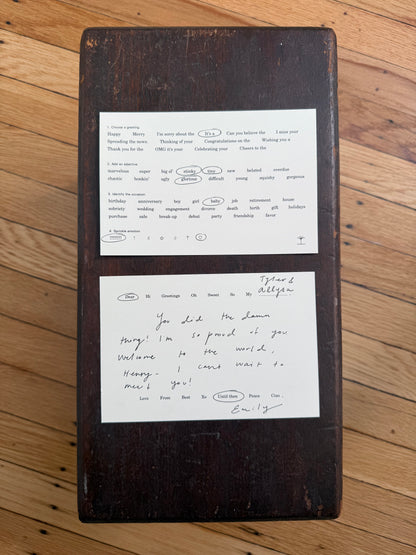 1. Choose a greeting
Happy Merry I'm sorry about the It's a Can you believe the I miss your
Spreading the news Thinking of your Congratulations on the Wishing you a
Thank you for the OMG it's your Celebrating your Cheers to the
2. Add an adjective
marvelous super big ol' stinky tiny new belated overdue
chaotic honkin' ugly glorious difficult young squishy gorgeous
3. Identify the occasion
birthday anniversary boy girl baby job retirement house
sobriety wedding engagement divorce death birth gift holidays
purchase sale break-up debut party friendship favor
4. Sprinkle emotion
Tyler &
Allysa
Dear Hi Greetings Oh Sweet So My
You did the damn
thing! I'm so proud of you
Welcome to the world,
Henry- I can't wait to
meet you!
Love From Best Xo Until then Peace Ciao ,
Emily